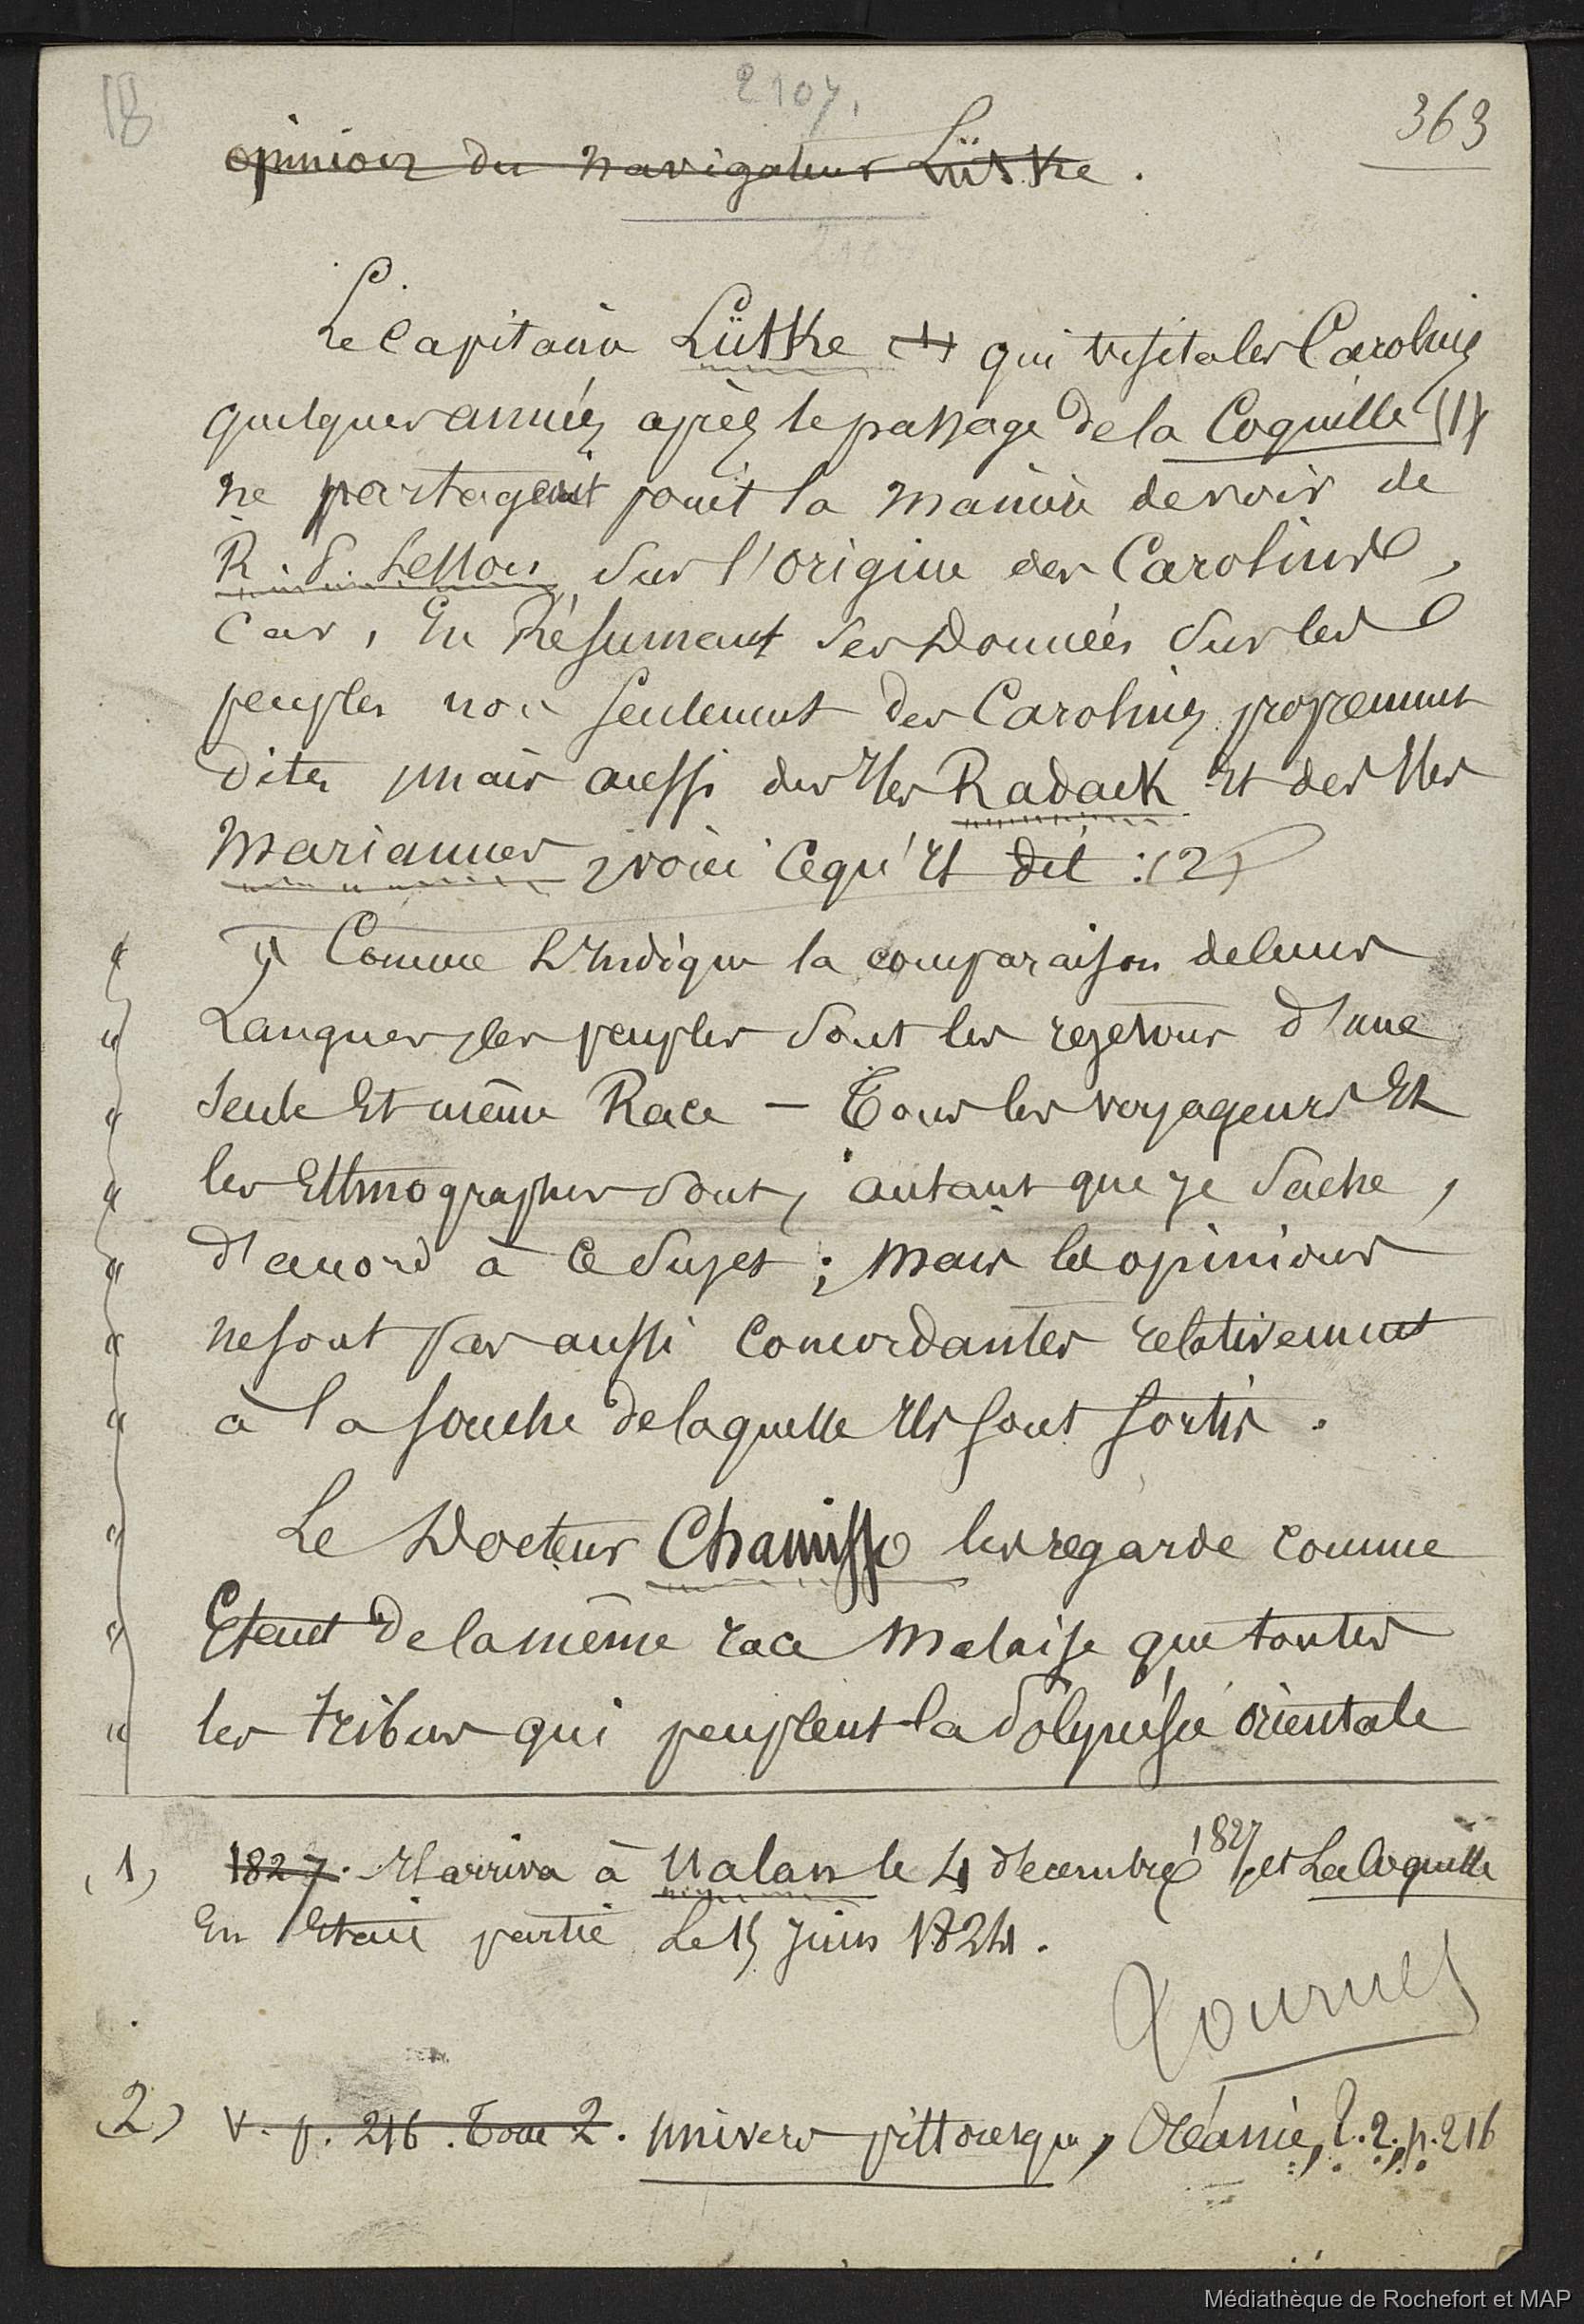 18
2107.
363
opinion du navigateur Lütke.
Le Capitaine Lütke (1) qui visita les Carolines
quelques années après le passage de la Coquille (1)
ne partageait point la manière de voir de
R. P. Lesson, sur l'origine des Carolins,
Car, En Résumant ses Données sur les
peuples non seulement des Carolines proprement
dites, mais aussi des Iles Radack et des Iles
Mariannes, voici ce qu'il dit : (2)
" Comme L'Indique la comparaison de leurs
Langues, les peuples sont les rejetons d'une
seule Et même Race — Tous les voyageurs Et
les Ethnographes sont, autant que je sache,
d'accord à ce sujet ; Mais les opinions
ne sont pas aussi concordantes relativement
à la souche de laquelle Ils sont sortis.
Le Docteur Chamisso les regarde comme
Etant de la même race Malaise que toutes
les tribus qui peuplent la Polynésie orientale
(1) 1827. Il arriva à Ualan le 4 décembre 1827, et La Coquille
En Etait partie Le 15 Juin 1824.
Tournez
(2) V. p. 216. Tome 2. Univers pittoresque, Océanie, T. 2. p. 216
Médiathèque de Rochefort et MAP